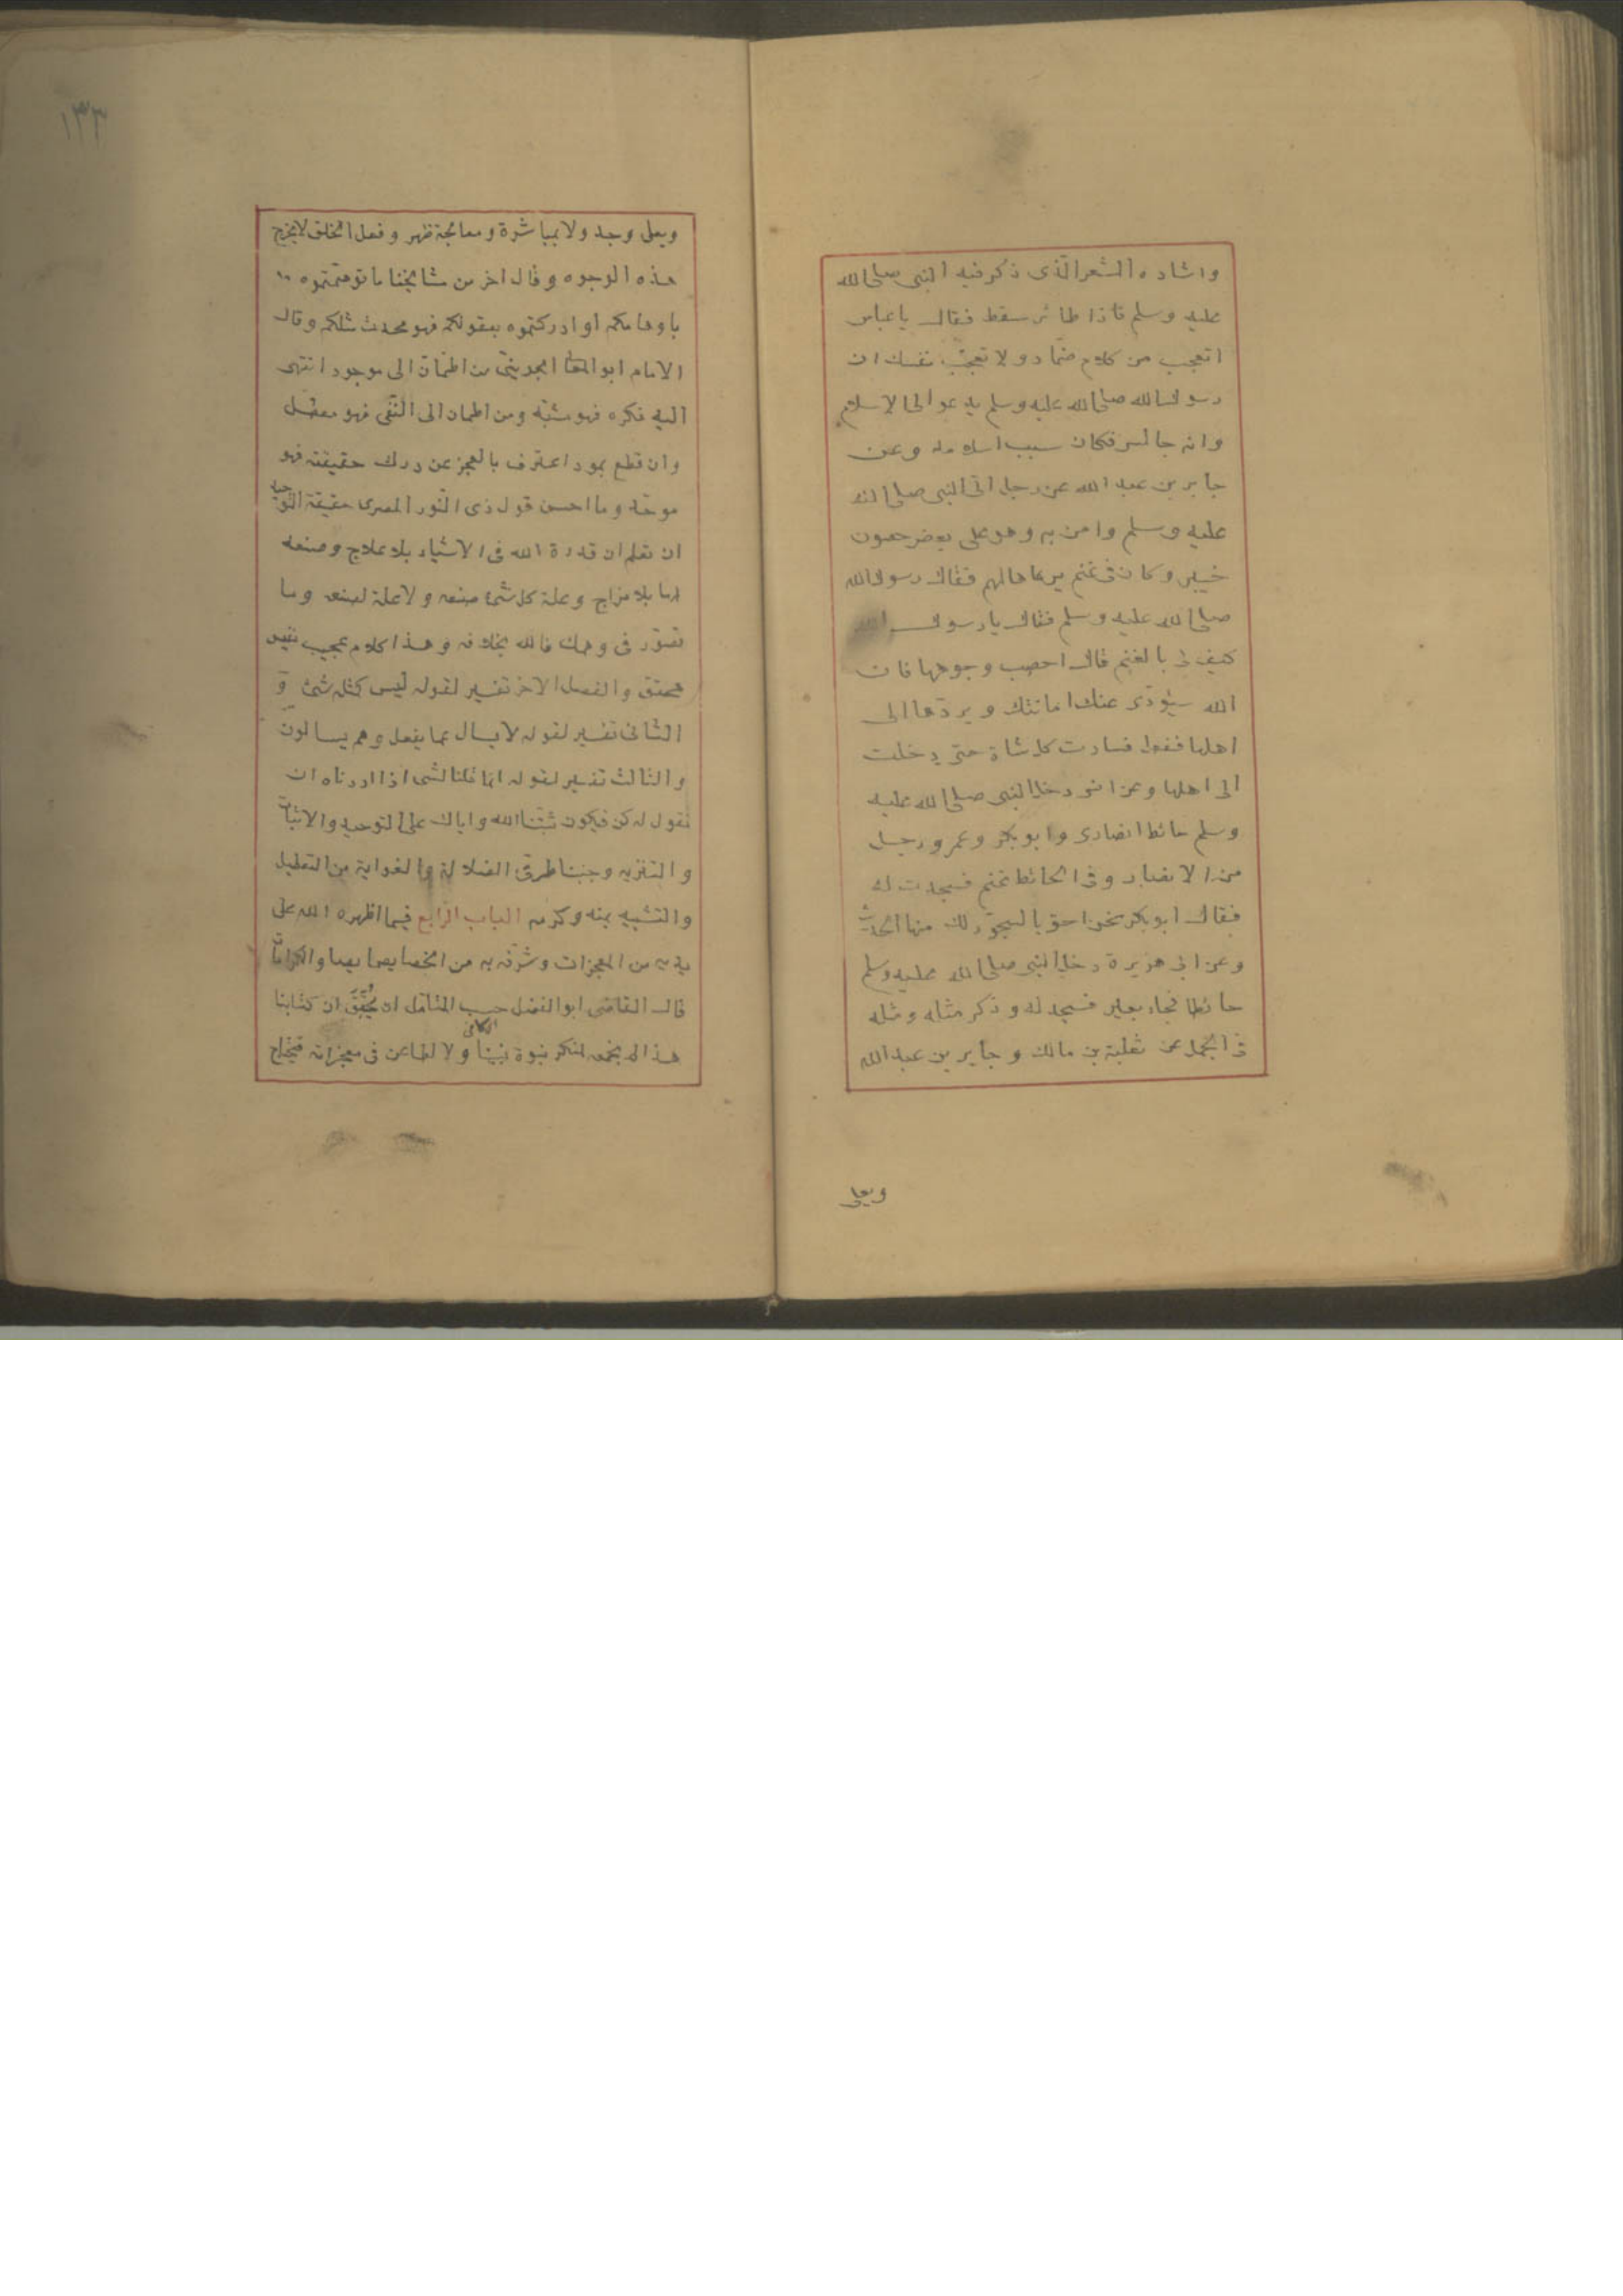 وانشاده الشعر الذى ذكر فيه النبى صلى الله
عليه وسلم فاذا طائر سقط فقال يا عباس
اتعجب من كلام ضمار ولا تعجب نفسك ان
رسول الله صلى الله عليه وسلم يدعو الى الاسلام
وانه جالس فكان سبب اسلامه وعن
جابر بن عبد الله عن رجل اتى النبى صلى الله
عليه وسلم وامن به وهو على بعض حصون
خيبر وكان فى غنم يرعاها لهم فقال رسول الله
صلى الله عليه وسلم فقال يا رسول الله
كيف لى بالغنم قال احصب وجوهها فان
الله سيؤدى عنك امانتك ويردها الى
اهلها ففعل فسارت كل شاة حتى دخلت
الى اهلها وعن انس دخل النبى صلى الله عليه
وسلم حائط انصارى وابو بكر وعمر ورجل
من الانصار وفى الحائط غنم فسجدت له
فقال ابو بكر نحن احق بالسجود لك منها الحديث
وعن ابى هريرة دخل النبى صلى الله عليه وسلم
حائطا فجاء بعير فسجد له وذكر مثله ومثله
فى الجمل عن ثعلبة بن مالك وجابر بن عبد الله
ويعلى
١٣٣
ويعلى وجد ولا بمباشرة ومعالجة ظهر وفعل الخلق لا يخرج
هذه الوجوه وقال اخر من مشايخنا ما توهمتموه
باوهامكم او ادركتموه بعقولكم فهو محدث مثلكم وقال
الامام ابو المعالى الجوينى من اطمأن الى موجود انتهى
اليه فكره فهو مشبه ومن اطمان الى النفى فهو معطل
وان قطع بموجود اعترف بالعجز عن درك حقيقته فهو
موحد وما احسن قول ذى النور المصرى حقيقة التوحيد
ان تعلم ان قدرة الله فى الاشياء بلا علاج وصنعه
لها بلا مزاج وعلة كل شئ صنعه ولا علة لصنعه وما
تصور فى وهمك فالله بخلافه وهذا كلام عجيب نفيس
محقق والفصل الاخر تفسير لقوله ليس كمثله شئ و
الثانى تفسير لقوله لا يسال عما يفعل وهم يسالون
والثالث تفسير لقوله انما قلنا لشى اذا اردناه ان
نقول له كن فيكون ثبتنا الله واياك على التوحيد والاثبات
والتنزيه وجنبنا طرق الضلالة والغواية من التعطيل
والتشبيه بمنه وكرمه الباب الرابع فيما اظهره الله على
يديه من المعجزات وشرفه به من الخصايص والكرامات
قال القاضى ابو الفضل حسب المتامل ان يحقق ان كتابنا
هذا لم يجمعه لمنكر نبوة نبينا ولا لطاعن فى معجزاته فيحتاج